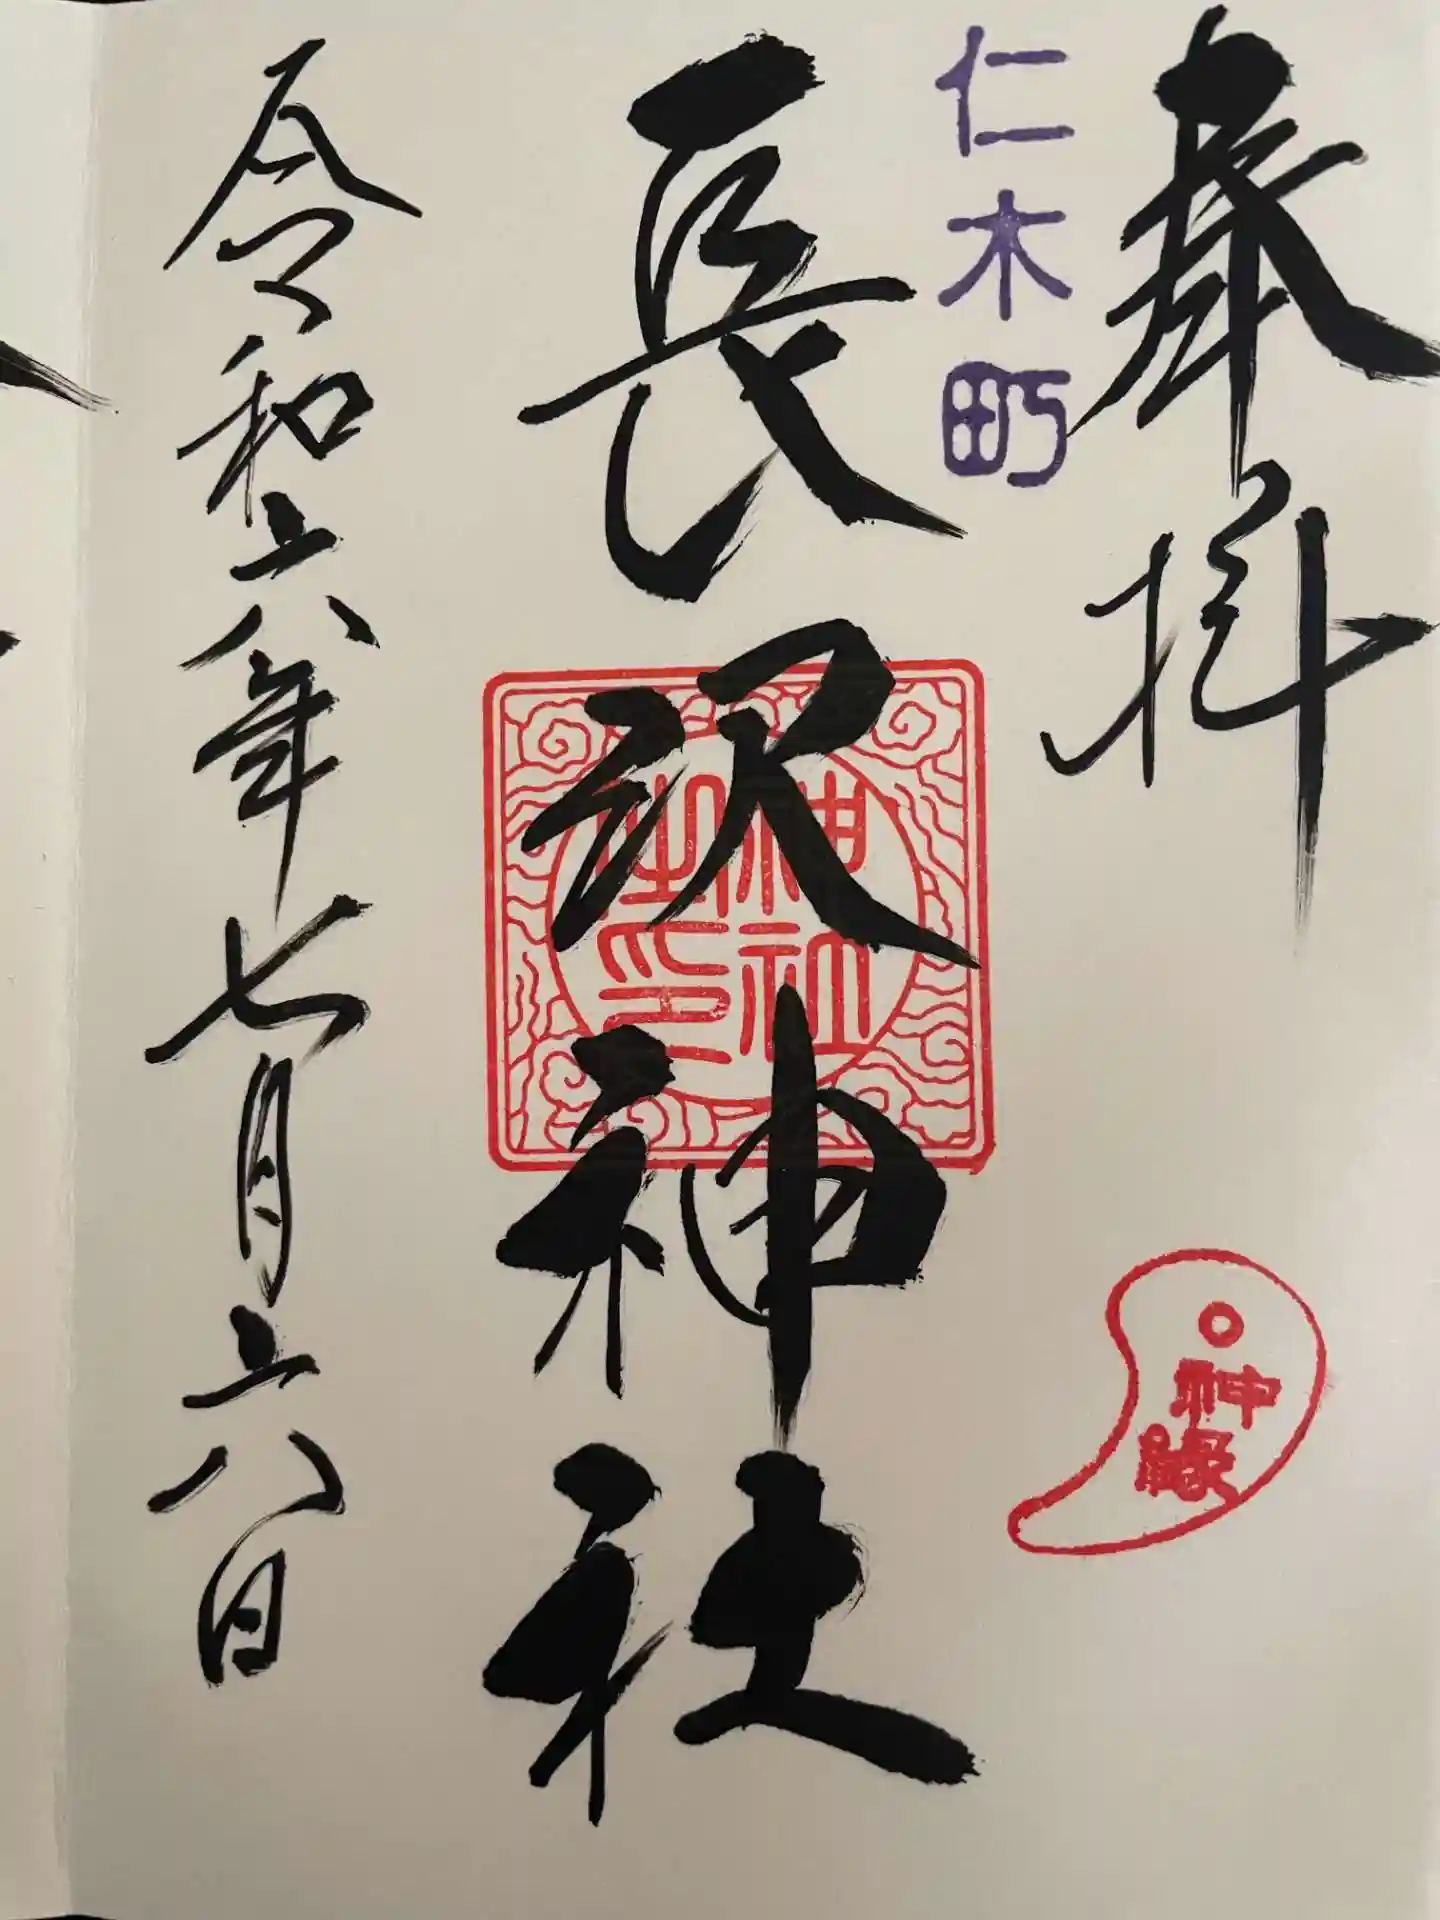 奉拝
仁木町
長沢神社
神社
之印
神縁
令和六年七月六日